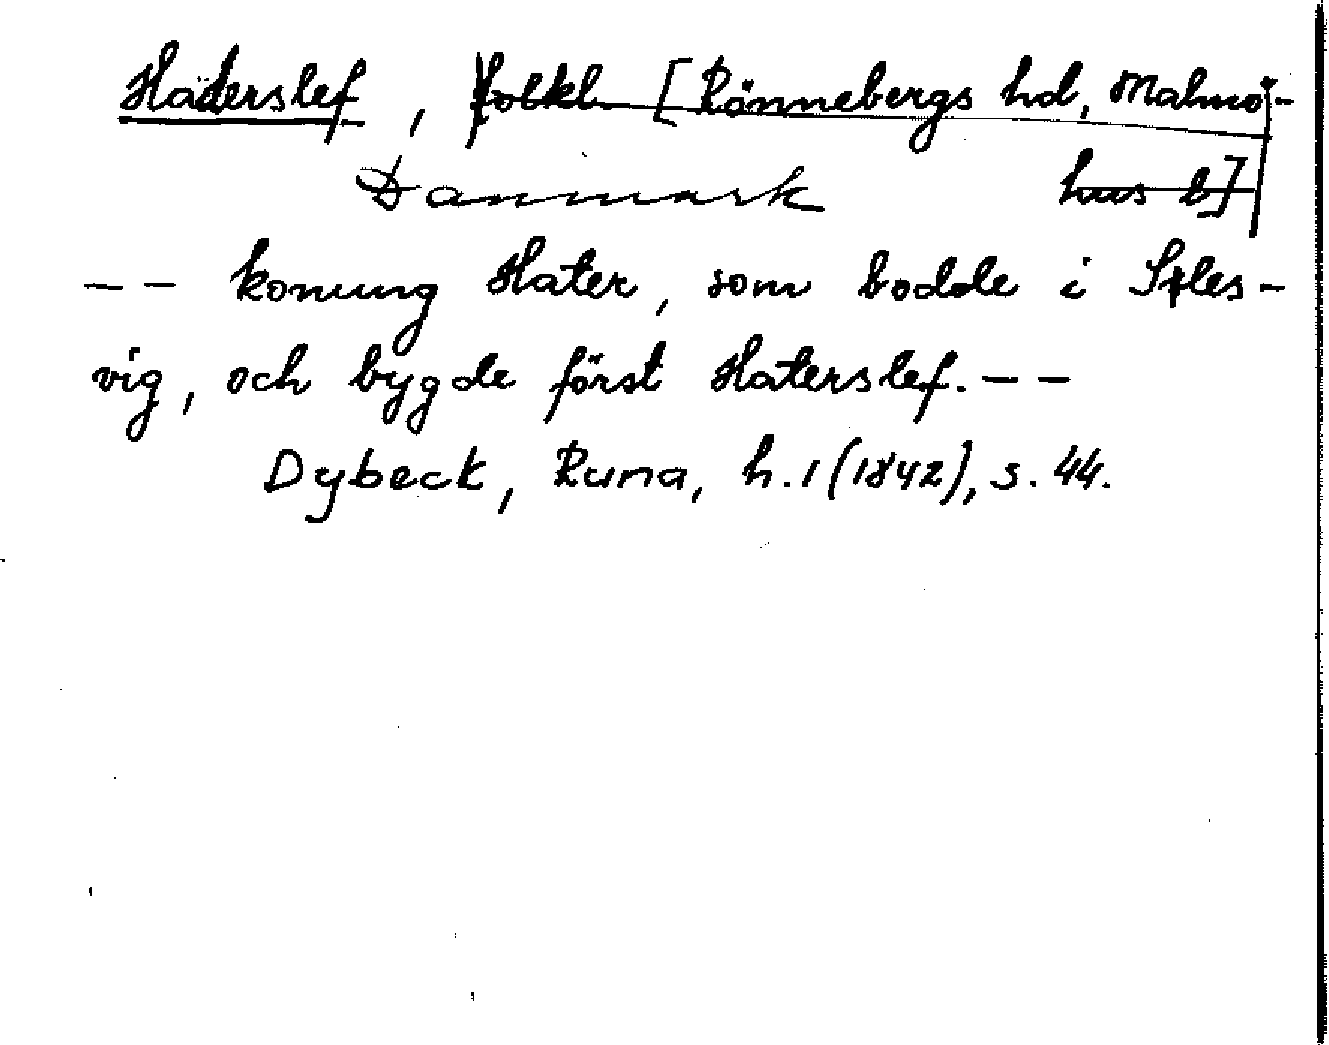 Haderslef, folkl. [Rönnebergs hd, Malmö-
Danmark hus l]
-- konung Hater, som bodde i Sles-
vig, och bygde först Haterslef. --
Dybeck, Runa, h. 1 (1842), s. 44.